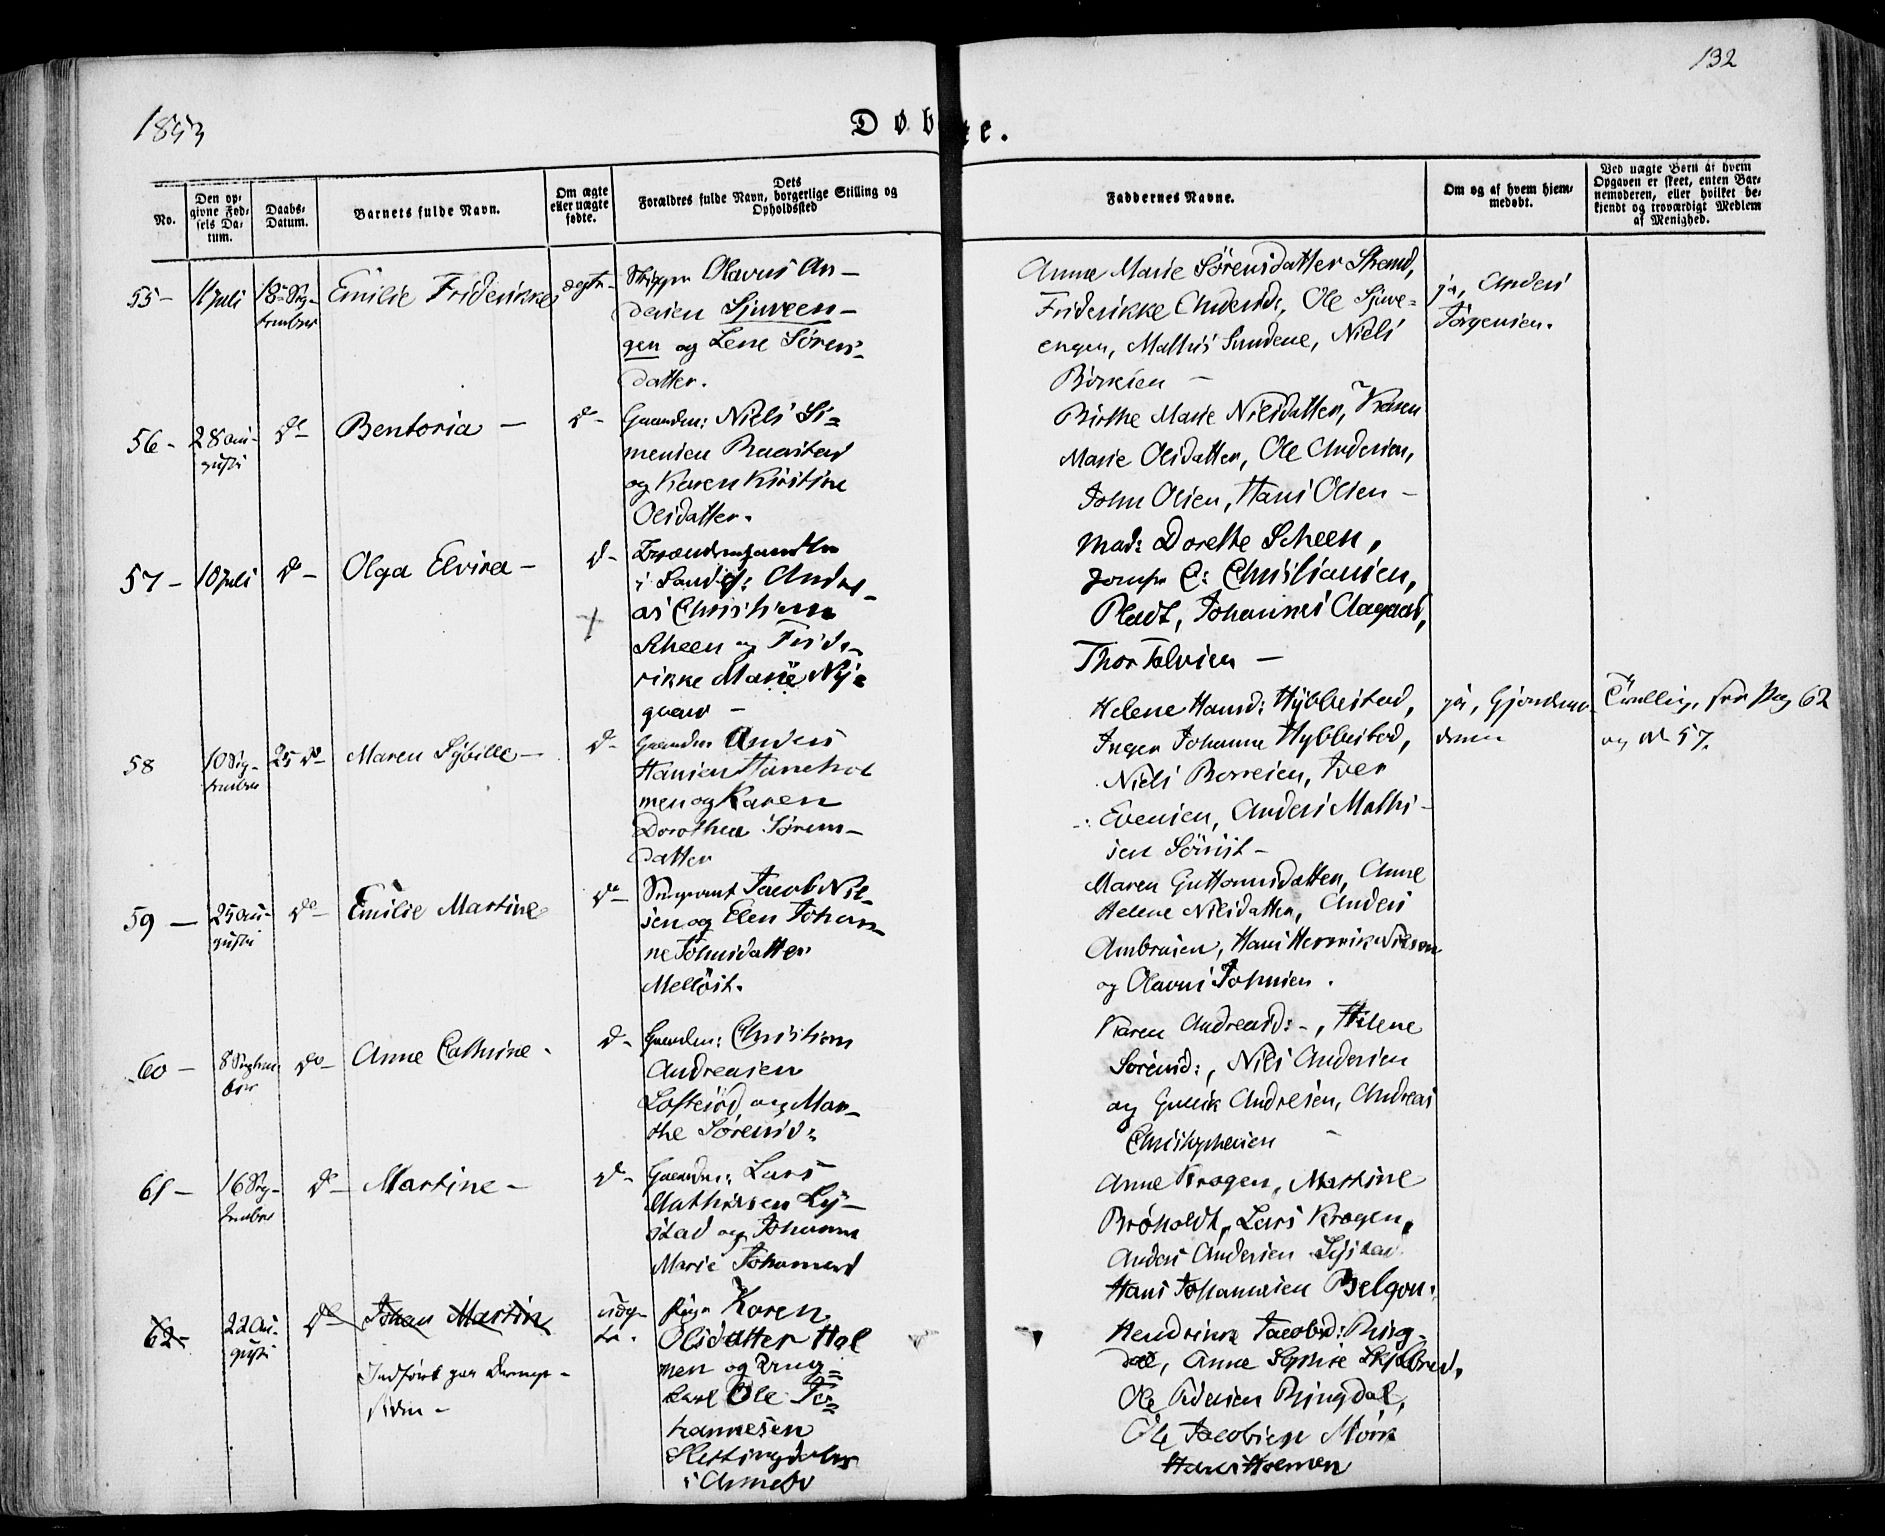 132
1853
Døbte.
No.
Den op-
givne Fød-
sels Da-
tum.
Daabs-
Datum.
Barnets fulde Navn.
Om ægte
eller uægte
fødte.
Dets
Forældres fulde Navn, borgerlige Stilling og
Opholdssted
Faddernes Navne.
Om og af hvem hjem-
medøbt.
Ved uægte Børn af hvem
Opgaven er skeet, enten Bar-
nemoderen, eller hvilket be-
kjendt og troværdigt Medlem
af Menighed.
55 - 11 Juli 18 Sep-
tember Emilie Friderikke ægte
Skipper Olavus An-
dersen Sjuveen-
gen og Lene Sørens-
datter.
Anne Marie Sørensdatter Strand,
Friderikke Andersd:, Ole Sjuve-
engen, Mathis Sundene, Niels
Børresen -
ja, Anders
Jørgensen.
56 - 28 Au-
gusti do - Bentoria - do -
Gaardm: Niels Si-
mensen Raastad
og Karen Kirstine
Olsdatter.
Birthe Marie Nilsdatter, Karen
Marie Olsdatter, Ole Andersen,
John Olsen, Hans Olsen -
57 - 10 Juli do - Olga Elvira - do -
i Sandef: Andre-
as Christian
Scheen og Fride-
rikke Marie Ny-
gaard -
Mad: Dorethe Scheen,
Jomfr C: Christiansen,
Pladt, Johannes Aagaard,
Thor Talvsen -
58 10 Sep-
tember 25 do - Maren Sybille - do -
Gaardm: Anders
Hansen Hanehol
men og Karen
Dorothea Sørens-
datter
Helene Hansd: Hybbestad,
Inger Johanne Hybbestad,
Niels Borresen, Iver
Evensen, Anders Mathi-
sen Sörist -
ja, Gjordemo
deren
Tvilling, see Pag 62
og No 57.
59 - 25 Au-
gusti do - Emilie Martine do -
Jacob Nil-
sen og Elen Johan-
ne Johnsdatter
Melløst.
Maren Guttormsdatter, Anne
Helene Nilsdatter, Anders
Ambrosen, Hans Henrik Nilsen
og Olavus Johnsen.
60 - 8 Septem-
ber do - Anne Cathrine - do -
Gaardm: Christian
Andreasen
Loftsrød og Mar-
the Sørensd:
Karen Andreasd: -, Helene
Sørensd:, Nils Andersen
og Gulik Andresen, Andreas
Christophersen -
61 - 16 Sep-
tember do - Martine - do -
Gaardm: Lars
Mathisen Ly-
stad og Johanne
Marie Johannesd
Anne Krogen, Martine
Brøholdt, Lars Krogen,
Anders Andersen Lystad
Hans Johannesen Belgon.
62 - 22 Au-
gusti do - Johan Martin uæg-
te.
Indført paa
Pige Karen
Olsdatter Hol
men og Ung-
karl Ole Jo-
hannesen
i Arnebo
Hendrikke Jacobsd: Ring-
dal, Anne Sophie Skjelbred,
Ole Pedersen Ringdal,
Ole Jacobsen Mørk
Hans Holmen